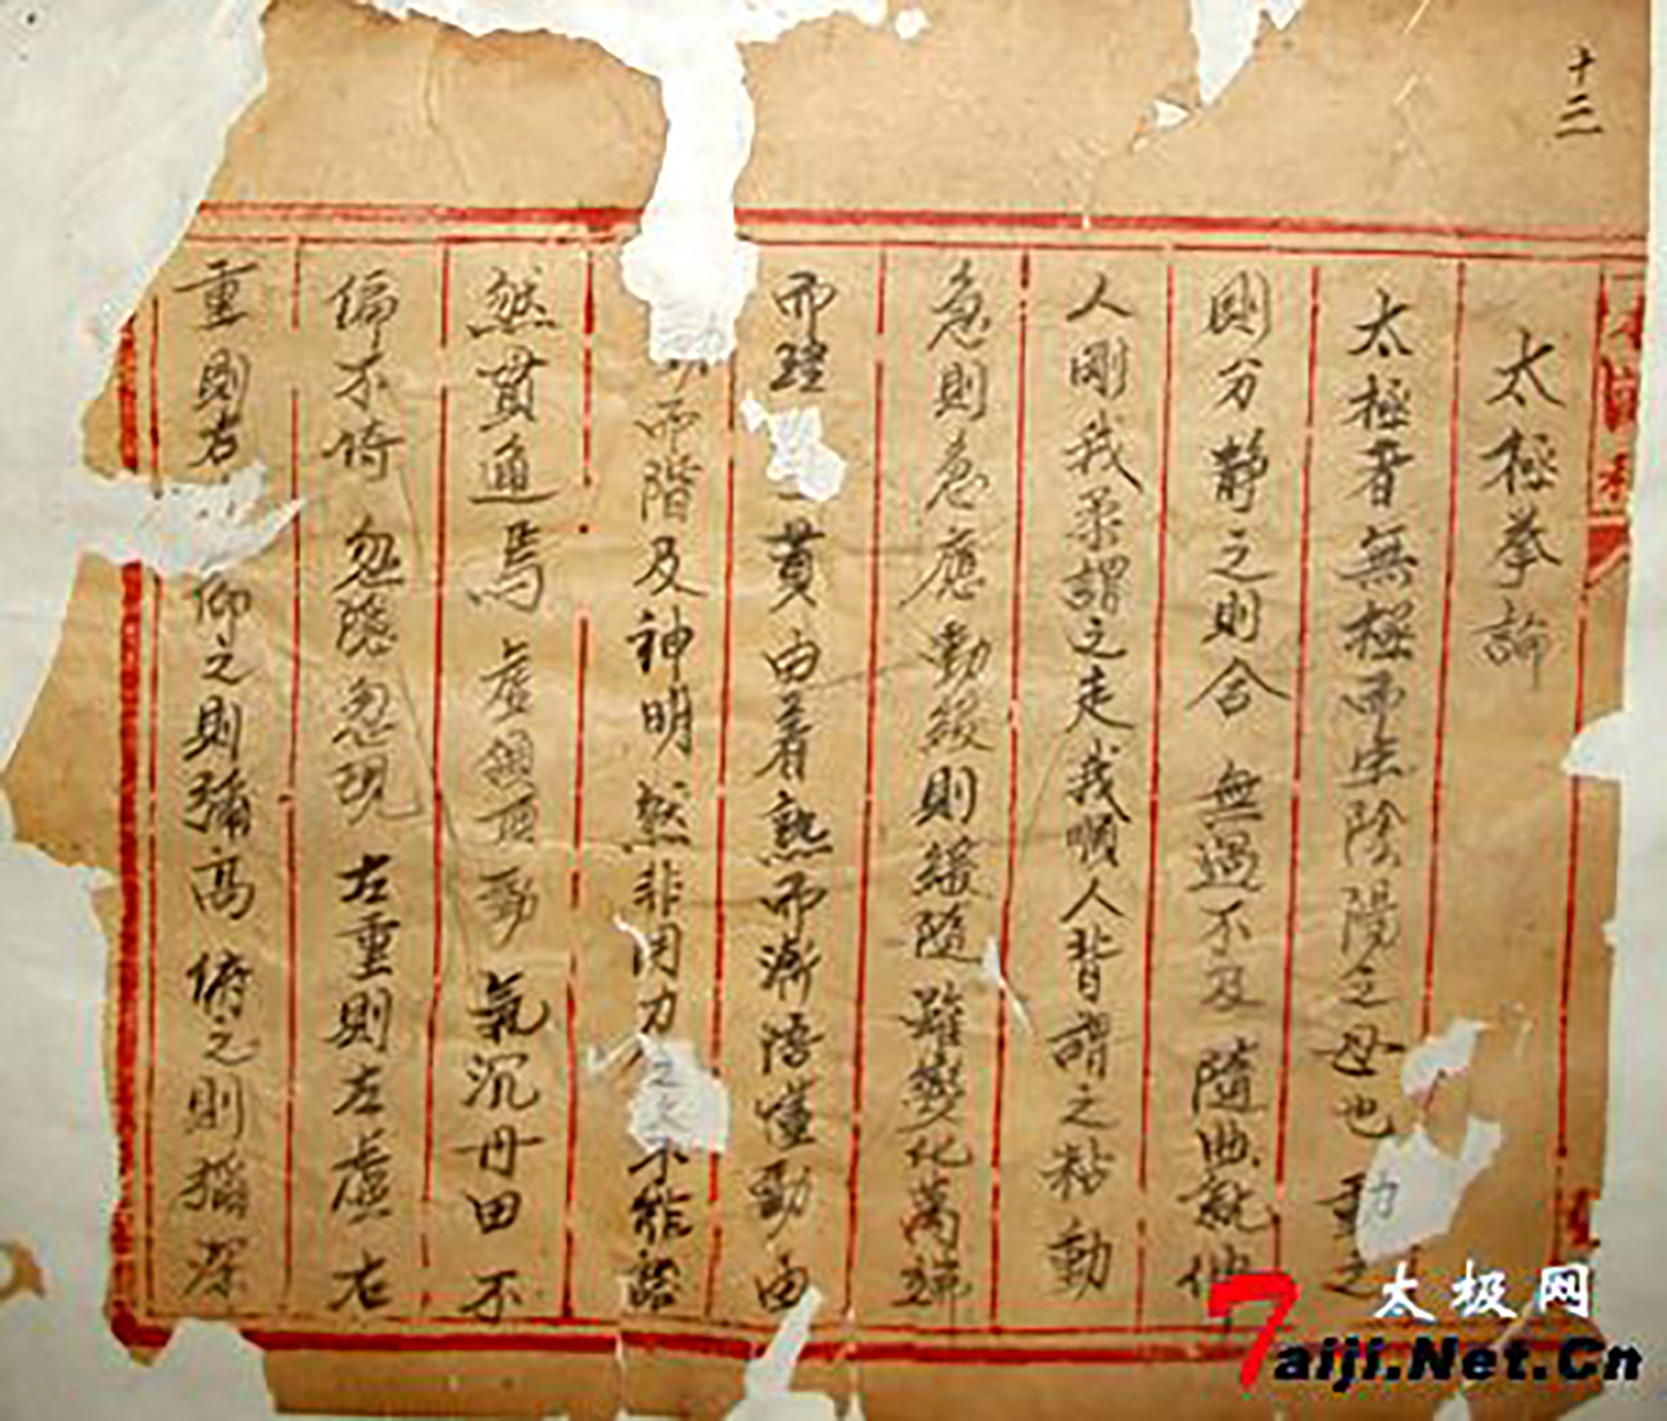 十二
太極拳論
太極者無極而生陰陽之母也動之
則分靜之則合無過不及隨曲就伸
人剛我柔謂之走我順人背謂之粘動
急則急應動緩則緩隨雖變化萬端
而理一貫由着熟而漸悟懂勁由
而階及神明然非用力之久不能豁
然貫通焉虛領頂勁氣沉丹田不
偏不倚忽隱忽現左重則左虛右
重則右仰之則彌高俯之則彌深
太极网
7aiji.Net.Cn